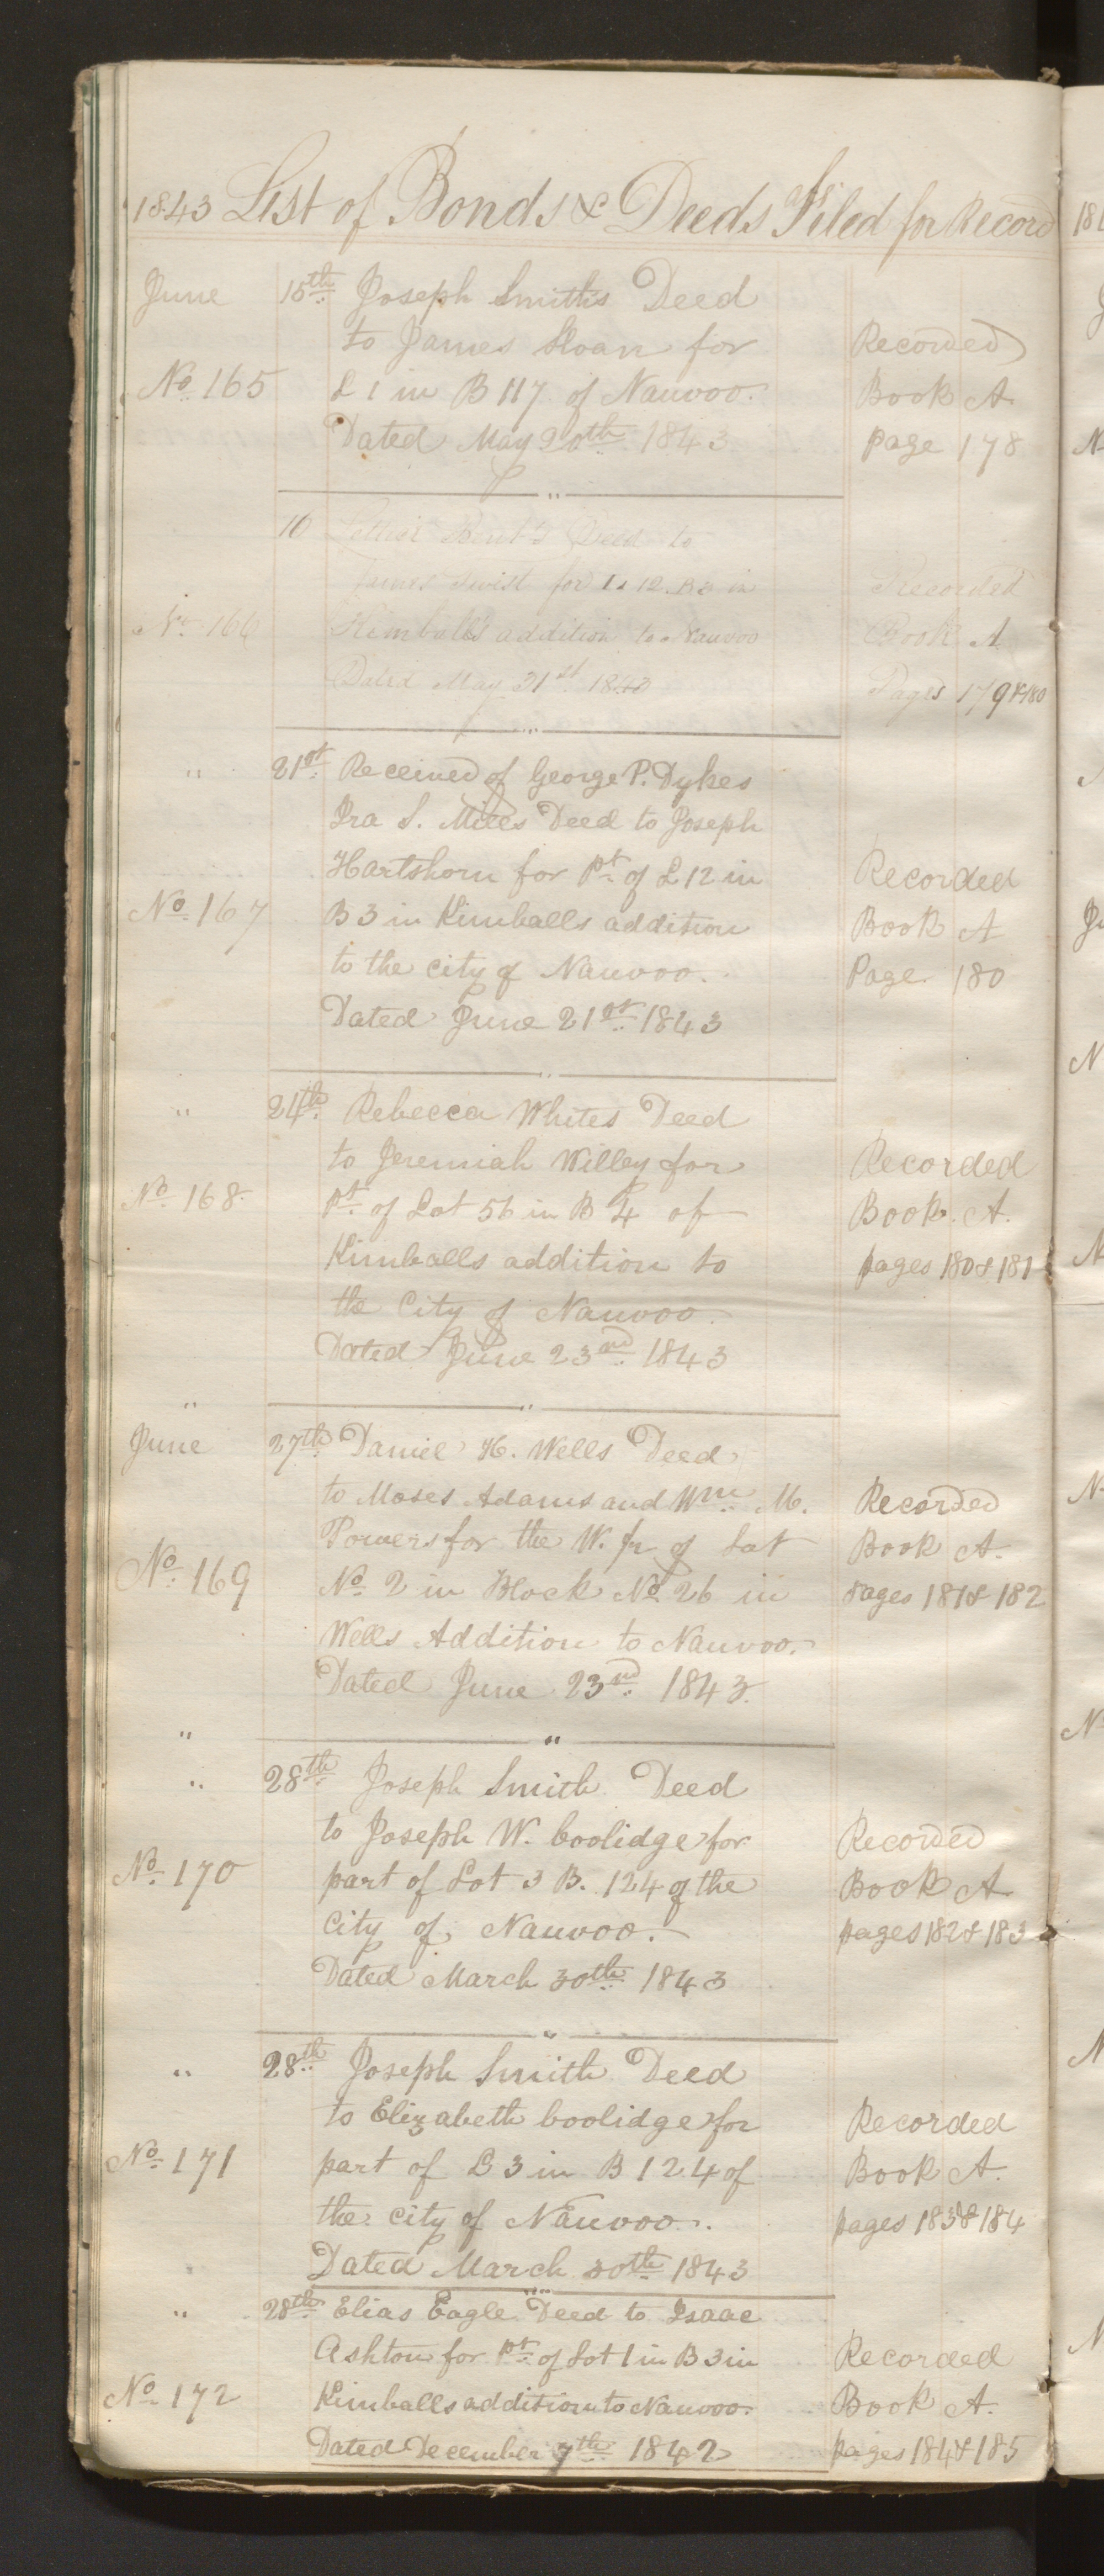 1843 List of Bonds & Deeds Filed for Record
June 15th Joseph Smiths Deed
to James Sloan for
L 1 in B 117 of Nauvoo.
Dated May 20th 1843
No 165
Recorded
Book A
page 178
16 Deed to
James Twist for L 12. B 3 in
Kimballs addition to Nauvoo
Dated May 31st 1843
No 166
Recorded
Book A
Pages 179 & 180
" 21st Received of George P. Dykes
Ira S. Miles Deed to Joseph
Hartshorn for Pt of L 12 in
B 3 in Kimballs addition
to the city of Nauvoo.
Dated June 21st 1843
No 167
Recorded
Book A
Page 180
" 24th Rebecca Whites Deed
to Jeremiah Willey for
Pt of Lot 56 in B 4 of
Kimballs addition to
the City of Nauvoo.
Dated June 23rd 1843
No 168
Recorded
Book A.
pages 180 & 181
"
June 27th Daniel H. Wells Deed
to Moses Adams and Wm M.
Powers for the W. fr of Lot
No 2 in Block No 26 in
Wells Addition to Nauvoo.
Dated June 23rd 1843.
No 169
Recorded
Book A.
Pages 181 & 182
"
" 28th Joseph Smith Deed
to Joseph W. Coolidge for
part of Lot 3 B. 124 of the
City of Nauvoo.
Dated March 30th 1843
No 170
Recorded
Book A
pages 182 & 183
" 28th Joseph Smith Deed
to Elizabeth Coolidge for
part of L 3 in B 124 of
the city of Nauvoo.
Dated March 30th 1843
No 171
Recorded
Book A.
pages 183 & 184
" 28th Elias Eagle Deed to Isaac
Ashton for Pt of Lot 1 in B 3 in
Kimballs addition to Nauvoo.
Dated December 7th 1842
No 172
Recorded
Book A.
pages 184 & 185